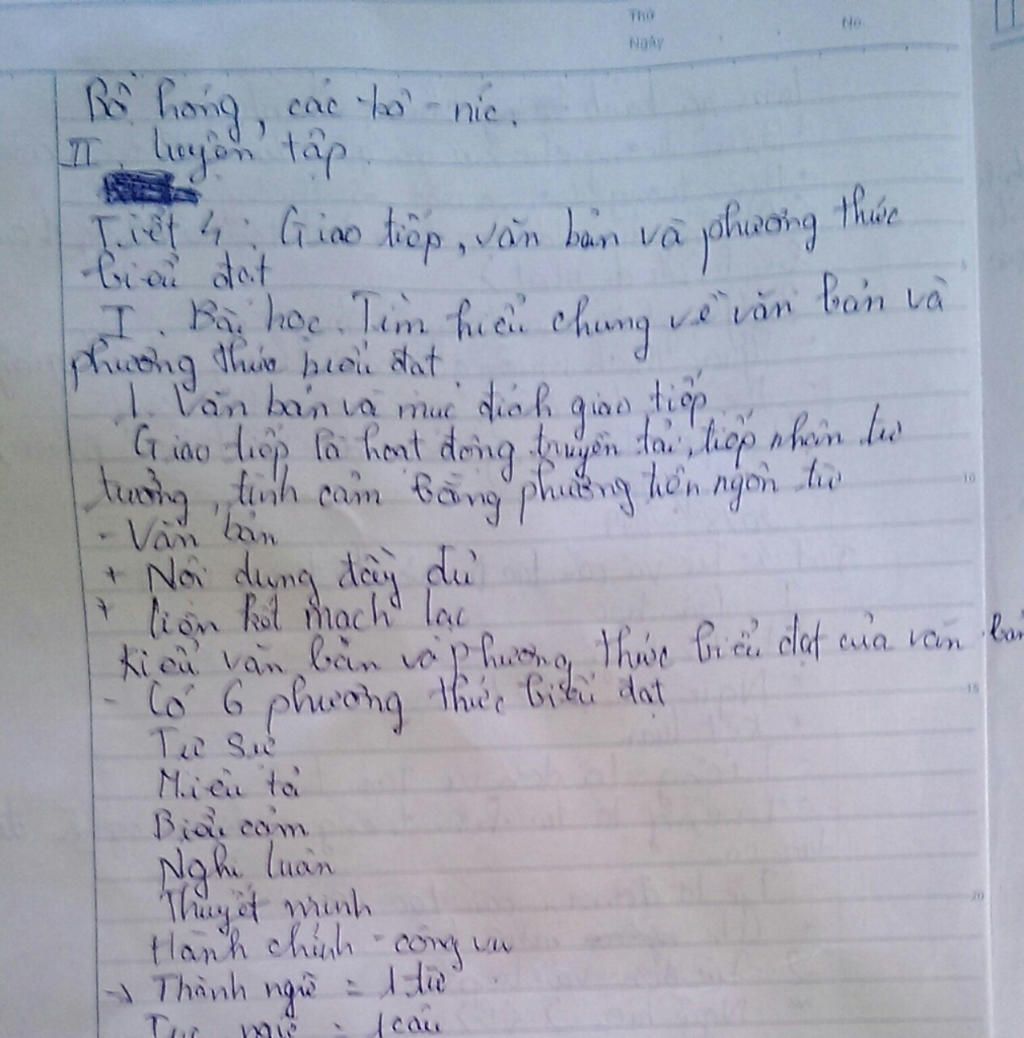 Thứ
No.
Ngày
Bồ hóng, các-bô-níc.
II. Luyện tập.
Tiết 4: Giao tiếp, văn bản và phương thức
biểu đạt
I. Bài học. Tìm hiểu chung về văn bản và
phương thức biểu đạt
1. Văn bản và mục đích giao tiếp
Giao tiếp là hoạt động truyền tải, tiếp nhận tư
tưởng, tình cảm bằng phương tiện ngôn từ
- Văn bản
+ Nội dung đầy đủ
+ liên kết mạch lạc
Kiểu văn bản và phương thức biểu đạt của văn bản
- Có 6 phương thức biểu đạt
Tự sự
Miêu tả
Biểu cảm
Nghị luận
Thuyết minh
Hành chính - công vụ
→ Thành ngữ = 1 từ
Tục ngữ = 1 câu
10
15
20